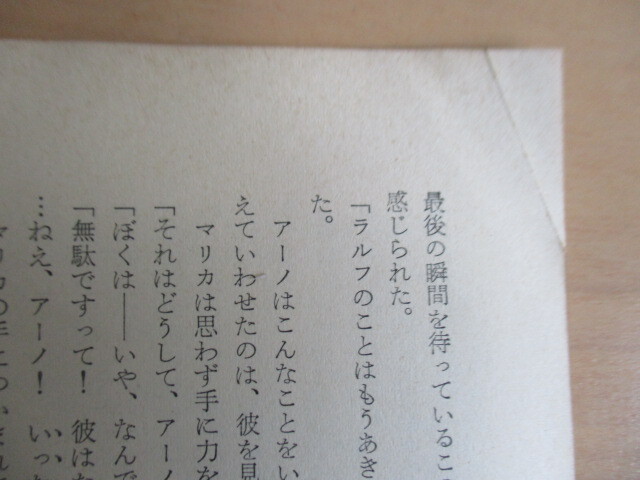 最後の瞬間を待っているこ
感じられた。
「ラルフのことはもうあき
た。
アーノはこんなことをい
えていわせたのは、彼を見
マリカは思わず手に力を
「それはどうして、アーノ
「ぼくは――いや、なんで
「無駄ですって！　彼はた
…ねえ、アーノ！　いった
マリカの手につかまれて